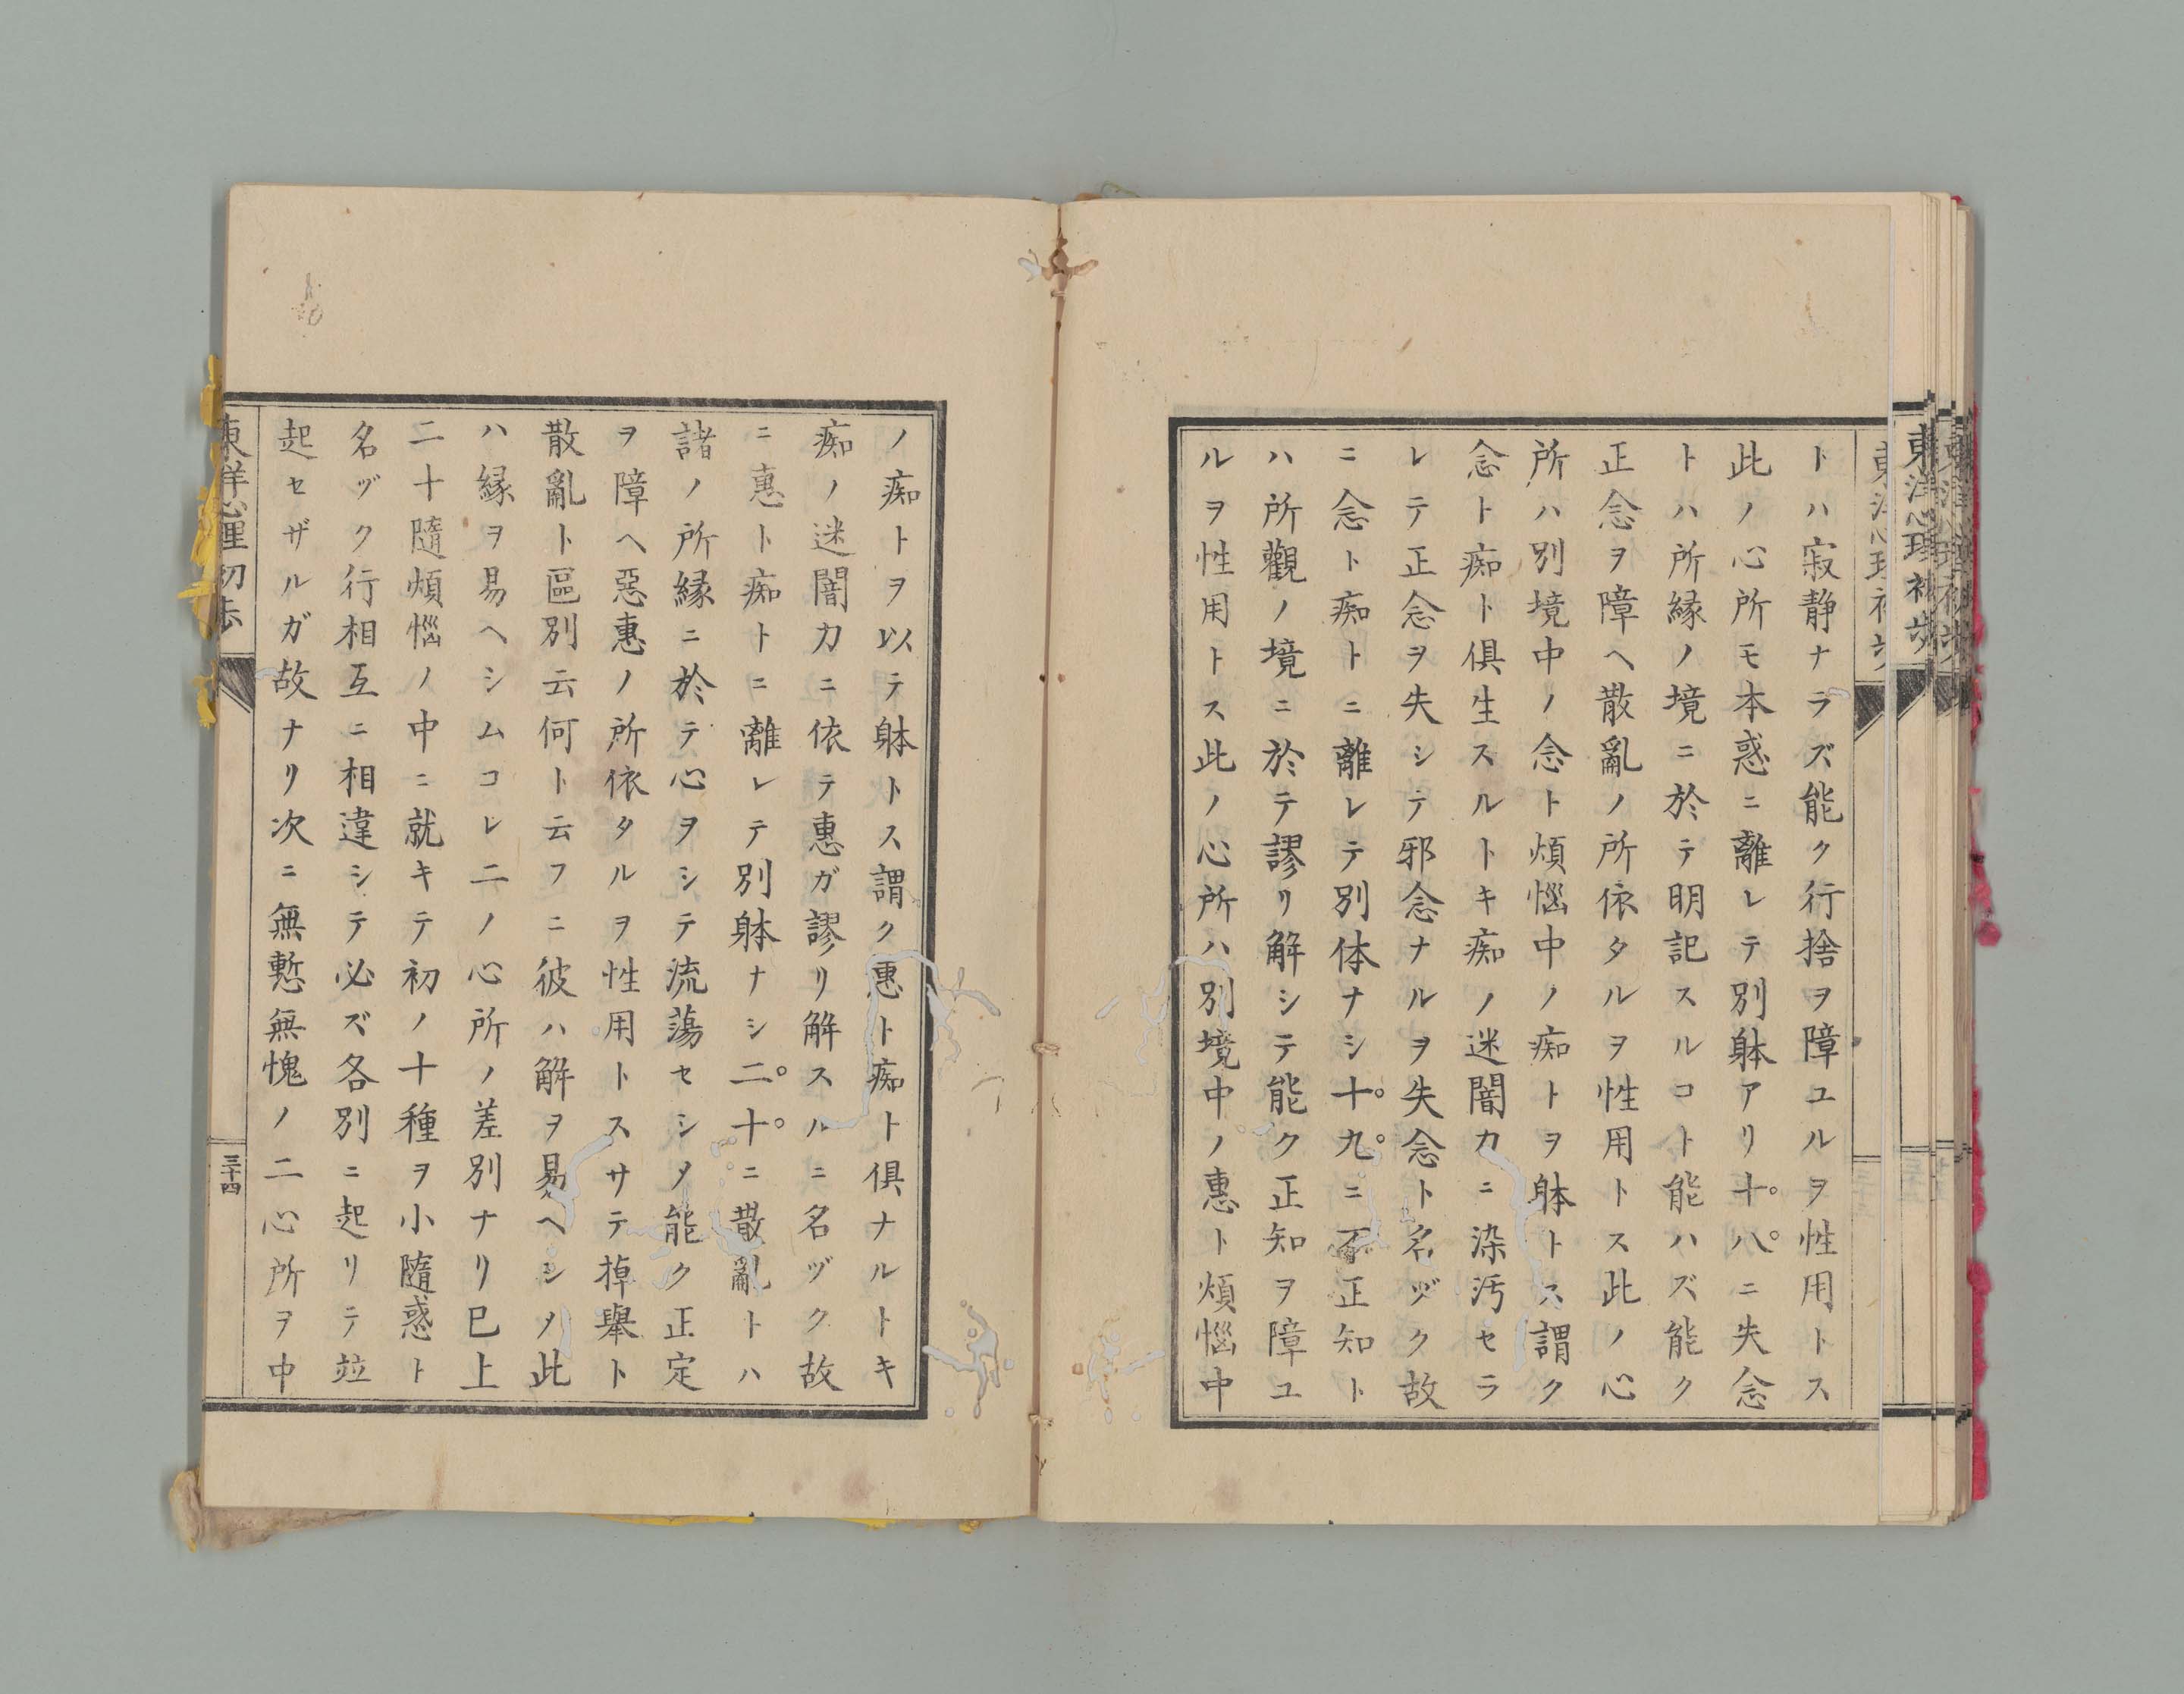 トハ寂静ナラズ能ク行捨ヲ障ユルヲ性用トス
此ノ心所モ本惑ニ離レテ別躰アリ十八ニ失念
トハ所縁ノ境ニ於テ明記スルコト能ハズ能ク
正念ヲ障ヘ散亂ノ所依タルヲ性用トス此ノ心
所ハ別境中ノ念ト煩惱中ノ痴トヲ躰トス謂ク
念ト痴ト俱生スルトキ痴ノ迷闇力ニ染汚セラ
レテ正念ヲ失シテ邪念ナルヲ失念ト名ヅク故
ニ念ト痴トニ離レテ別体ナシ十九ニ不正知ト
ハ所觀ノ境ニ於テ謬リ解シテ能ク正知ヲ障ユ
ルヲ性用トス此ノ心所ハ別境中ノ惠ト煩惱中
ノ痴トヲ以テ躰トス謂ク惠ト痴ト俱ナルトキ
痴ノ迷闇力ニ依テ惠ガ謬リ解スルニ名ヅク故
ニ惠ト痴トニ離レテ別躰ナシ二十ニ散亂トハ
諸ノ所縁ニ於テ心ヲシテ流蕩セシメ能ク正定
ヲ障ヘ惡惠ノ所依タルヲ性用トスサテ掉舉ト
散亂ト區別云何ト云フニ彼ハ解ヲ易ヘシメ此
ハ縁ヲ易ヘシムコレ二ノ心所ノ差別ナリ已上
二十隨煩惱ノ中ニ就キテ初ノ十種ヲ小隨惑ト
名ヅク行相互ニ相違シテ必ズ各別ニ起リテ竝
起セザルガ故ナリ次ニ無慙無愧ノ二心所ヲ中
東洋心理初歩
三十四